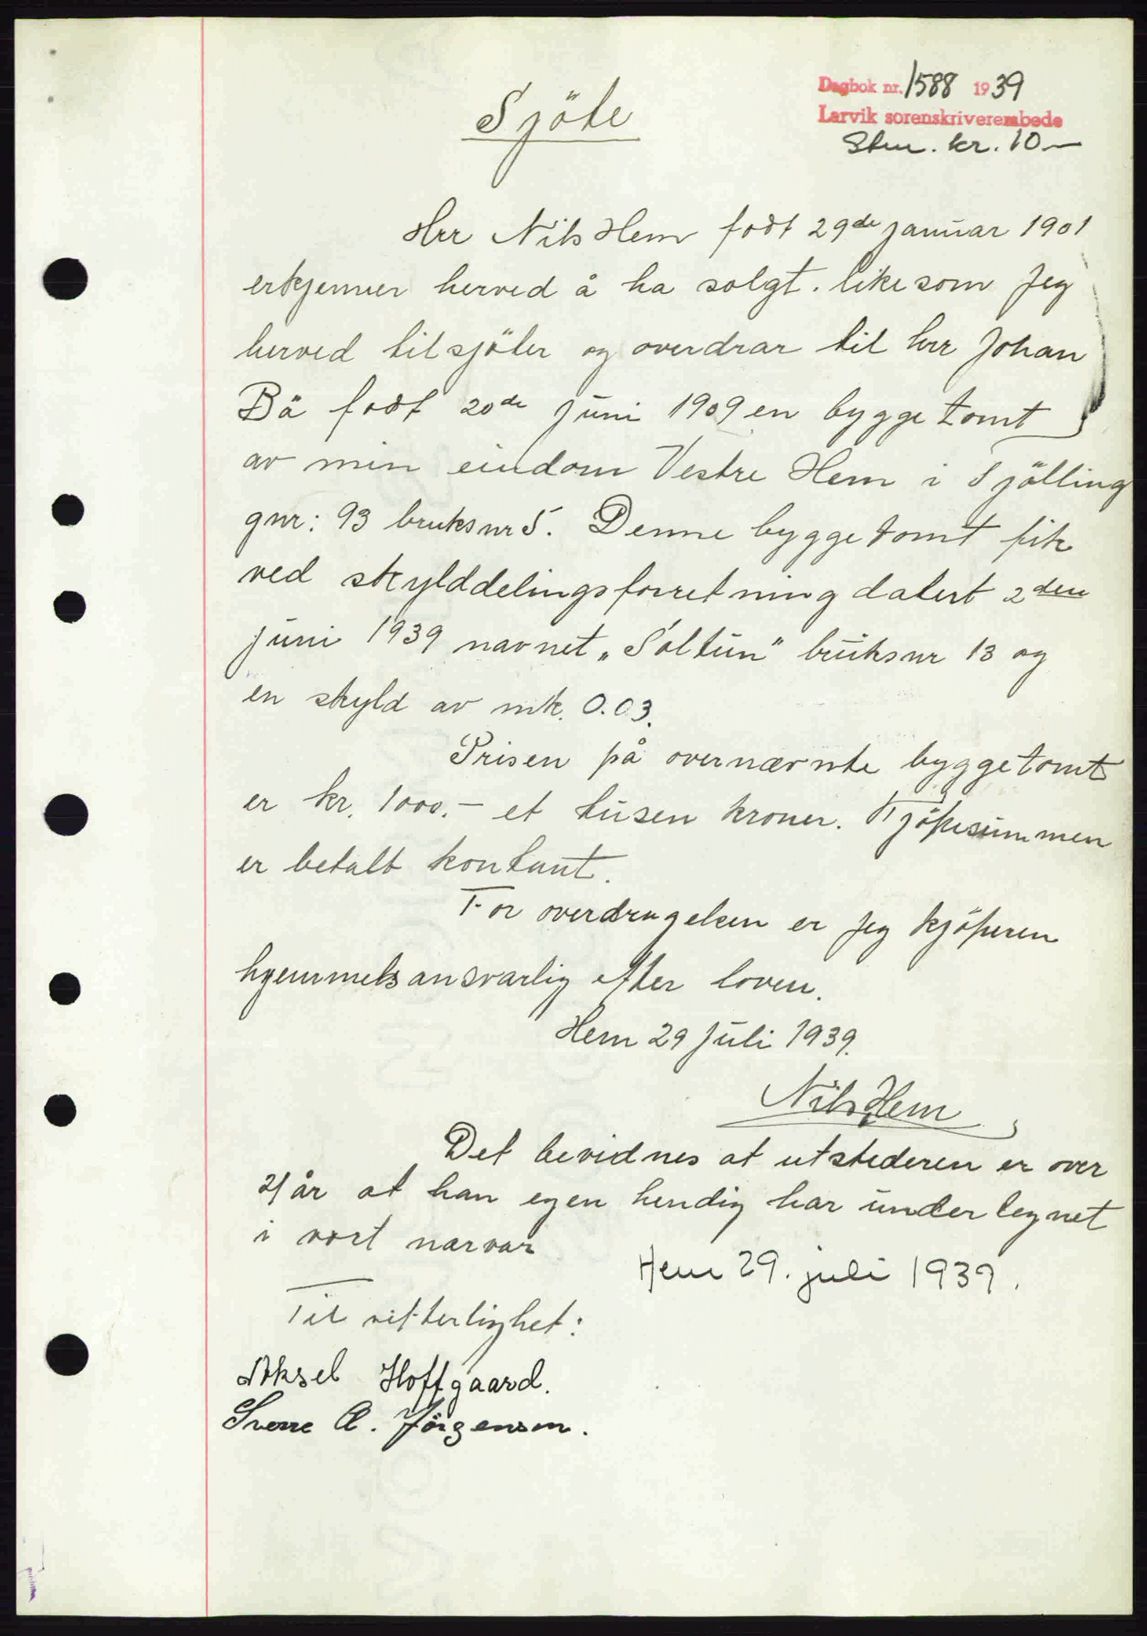 Dagbok nr. 1588 1939
Larvik sorenskriverembede
Stm. kr. 10 –
Sjöte
Herr Nils Hem födt 29de januar 1901
erkjenner herved å ha solgt. likesom jeg
herved tilsjöter og overdrar til herr Johan
Bå födt 20de juni 1909 en bygge tomt
av min eindom Vestre Hem i Tjölling
gnr: 93 bruksnr 5. Denne bygge tomt fik
ved skylddelingsforretning datert 2den
juni 1939 navnet „Soltun" bruksnr 13 og
en skyld av mk. 0.03.
Prisen på overnævnte byggetomt
er kr. 1000.– et tusen kroner. Kjöpesummen
er betalt kontant.
For overdragelsen er jeg kjöperen
hjemmelsansvarlig efter loven.
Hem 29 juli 1939.
Nils Hem
Det bevidnes at utstederen er over
21 år at han egen hendig har under tegnet
i vort narvar
Hem 29. juli 1939.
Til vitterlighet:
Aksel Hoffgaard.
Sverre A. Jörgensen.